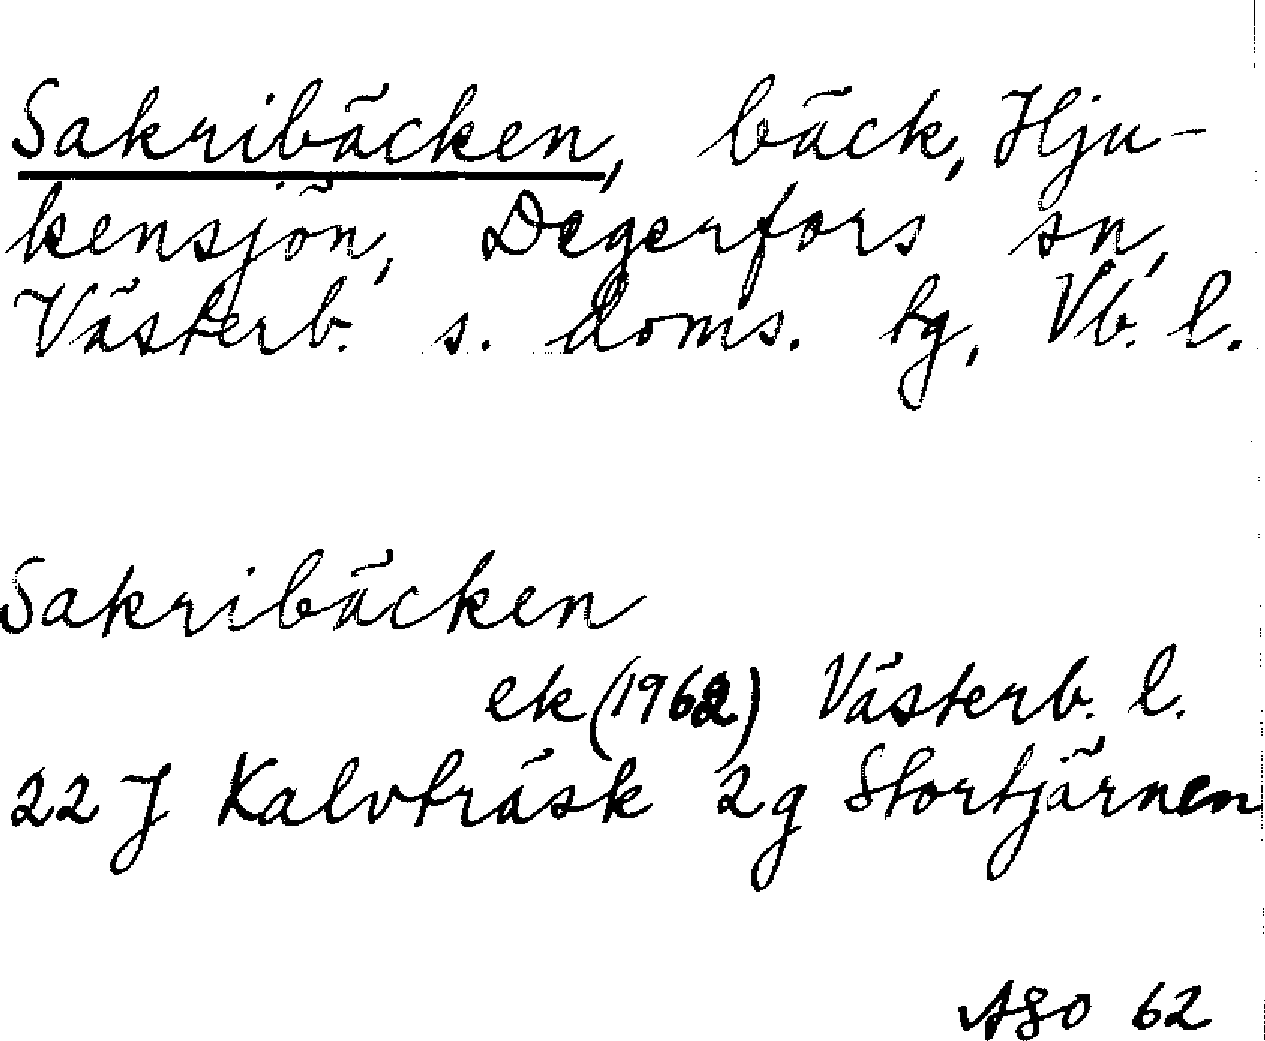 Sakribäcken, bäck, Hju-
kensjön, Degerfors sn,
Västerb. s. doms. tg, Vb. l.
Sakribäcken
ek (1962) Västerb. l.
22 J Kalvträsk 2g Stortjärnen
ASO 62